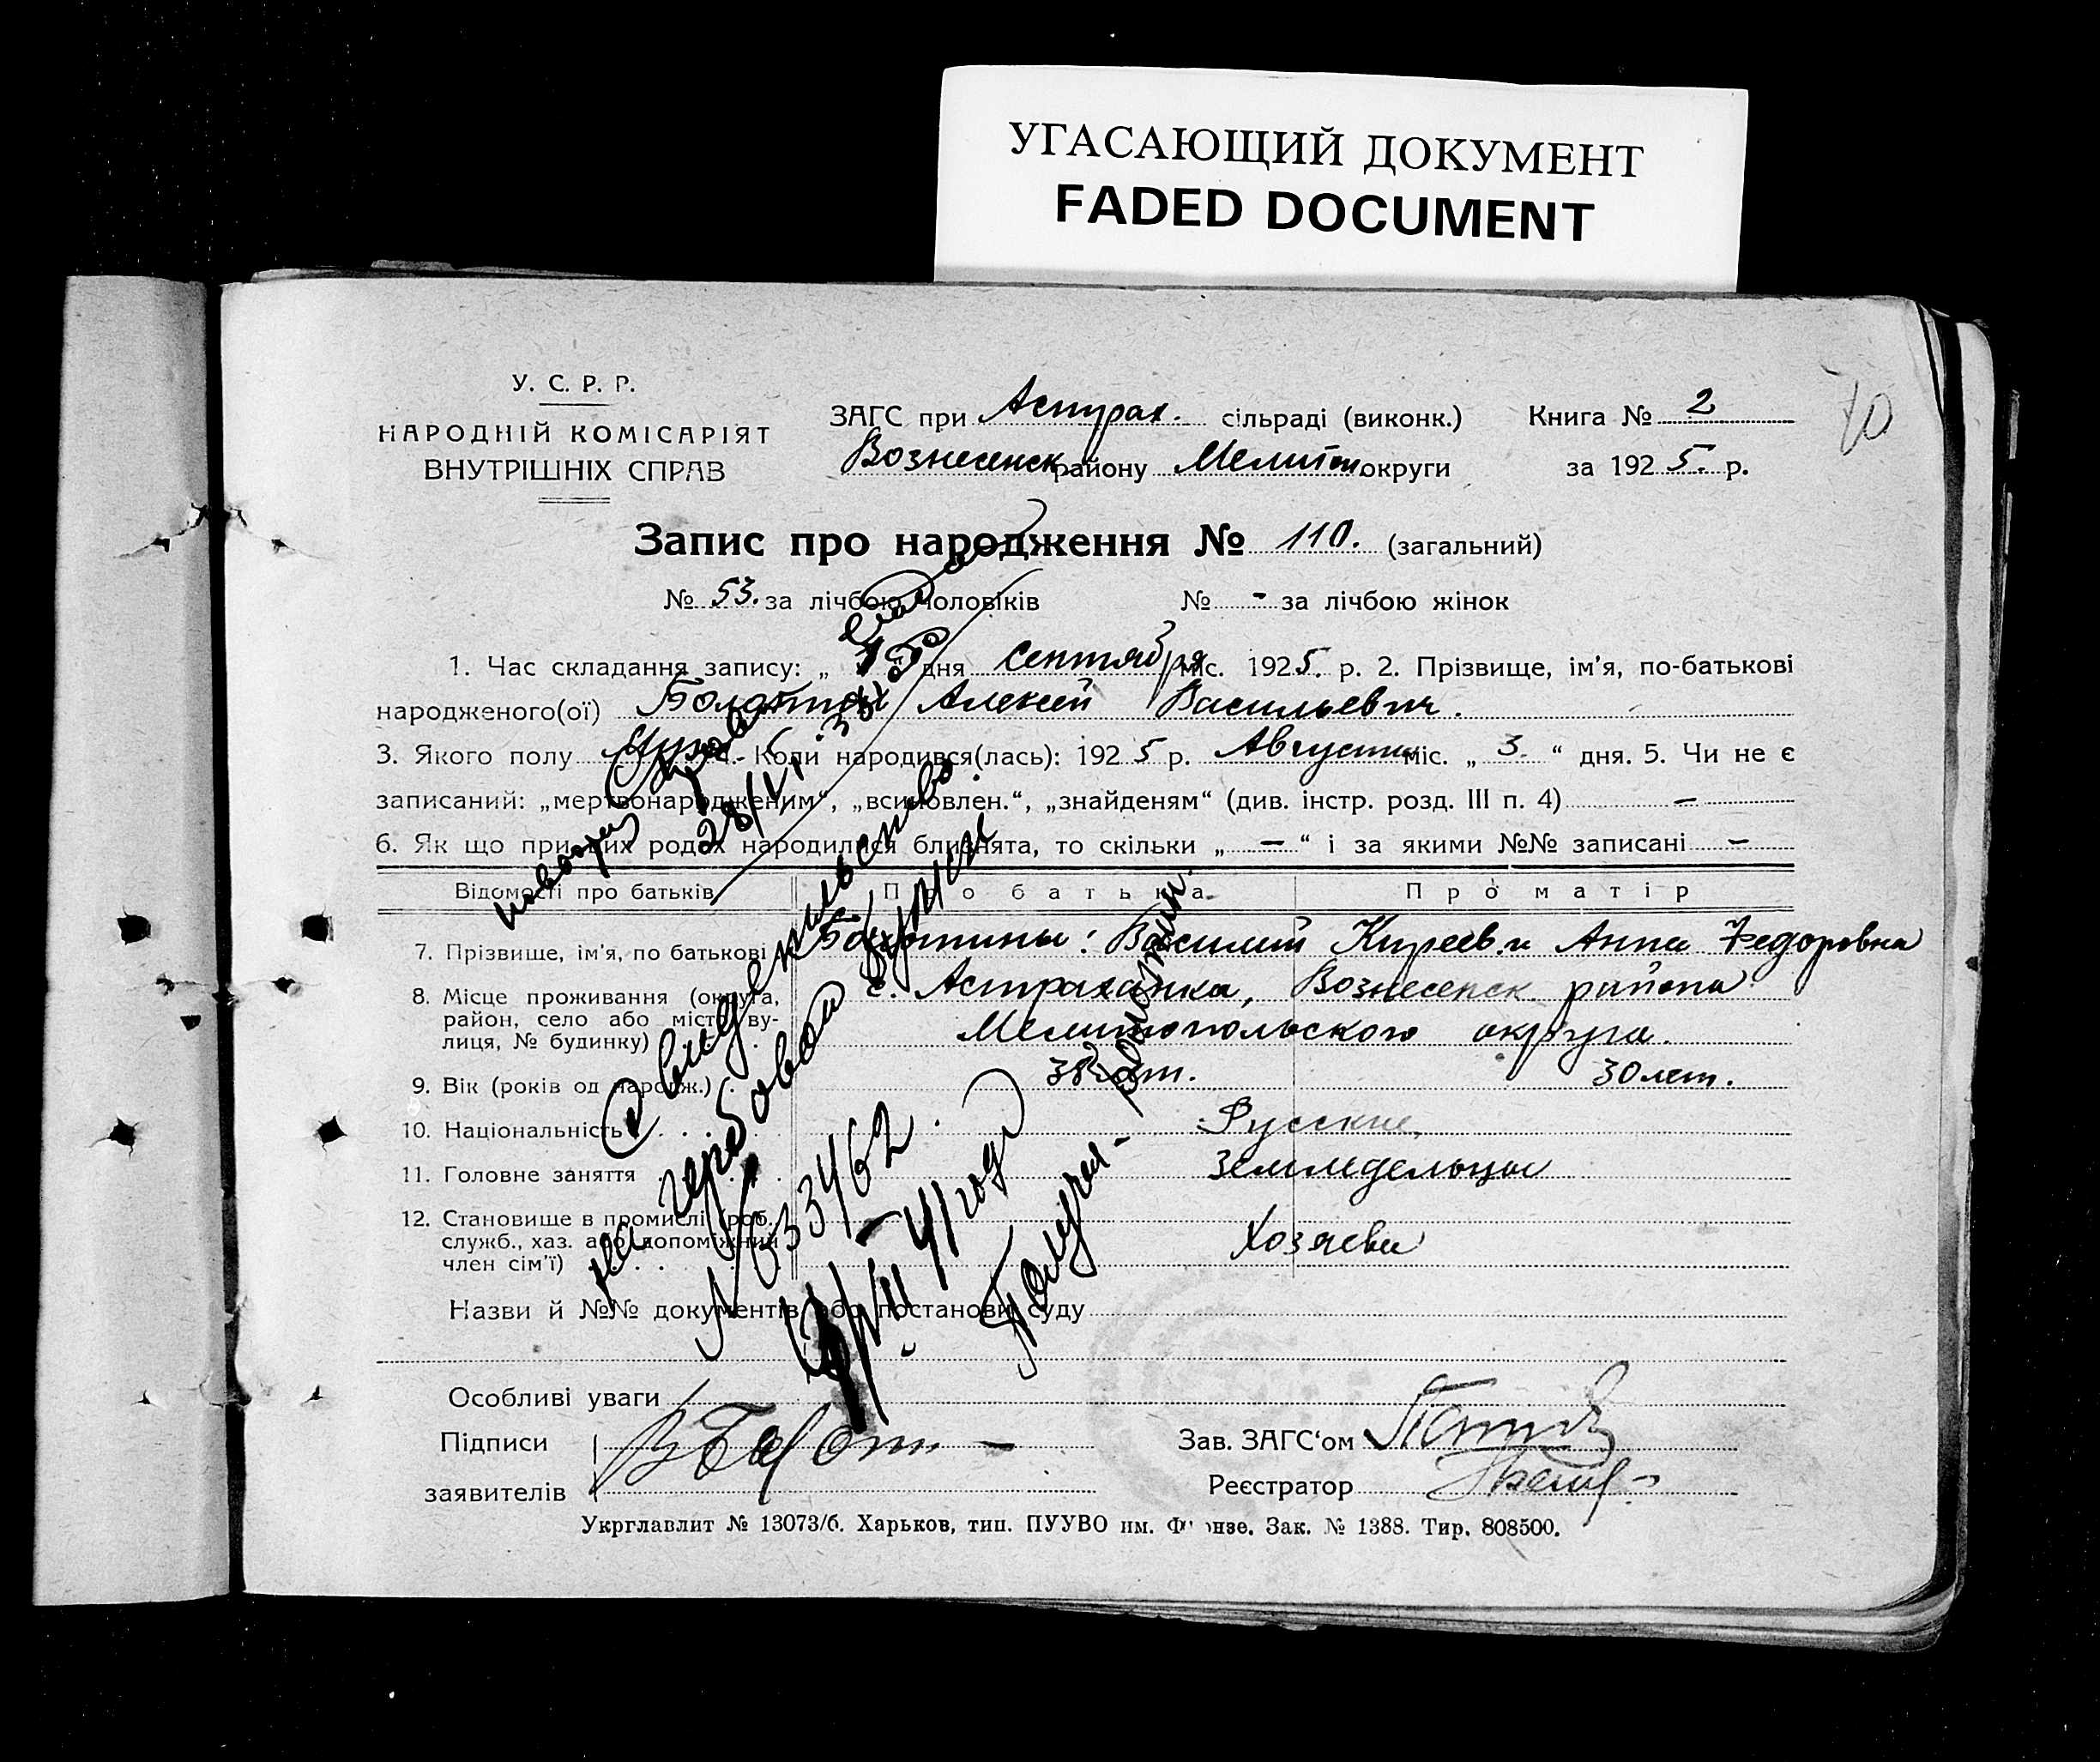 УГАСАЮЩИЙ ДОКУМЕНТ
FADED DOCUMENT
70
У. С. Р. Р.
НАРОДНІЙ КОМІСАРІЯТ
ВНУТРІШНІХ СПРАВ
ЗАГС при Астрах. сільраді (виконк.) Книга № 2
Вознесенск району Мелитоп округи за 1925. р.
Запис про народження № 110. (загальний)
№ 53. за лічбою чоловіків № - за лічбою жінок
1. Час складання запису: „ дня Сентября міс. 1925. р. 2. Прізвище, ім'я, по-батькові
народженого(ої) Болотин Алексей Васильевич.
3. Якого полу Муж. 4. Коли народився(лась): 1925 р. Августа міс. „ 3. “ дня. 5. Чи не є
записаний: „мертвонародженим“, „всиновлен.“, „знайденям“ (див. інстр. розд. III п. 4) —
6. Як що при цих родах народилися близнята, то скільки „ — “ і за якими №№ записані —
Відомості про батьків Про батька Про матір
7. Прізвище, ім'я, по батькові Болотины: Василий Киреев. и Анна Федоровна
8. Місце проживання (округа, с. Астраханка, Вознесенск района
район, село або місто, ву- Мелитопольского округа.
лиця, № будинку)
9. Вік (років од народж.) 38 лет. 30 лет.
10. Національність Русские
11. Головне заняття Земледельцы
12. Становище в промислі (роб.,
служб., хаз. або допоміжний Хозяева
член сім'ї)
Назви й №№ документів або постанови суду
Особливі уваги
Підписи
заявителів
Зав. ЗАГС'ом
Реєстратор
Укрглавлит № 13073/б. Харьков, тип. ПУУВО им. Фрунзе. Зак. № 1388. Тир. 808500.
Свидетельство
на гербовой бумаге
№ 333462.
41 года
Получил Болотин